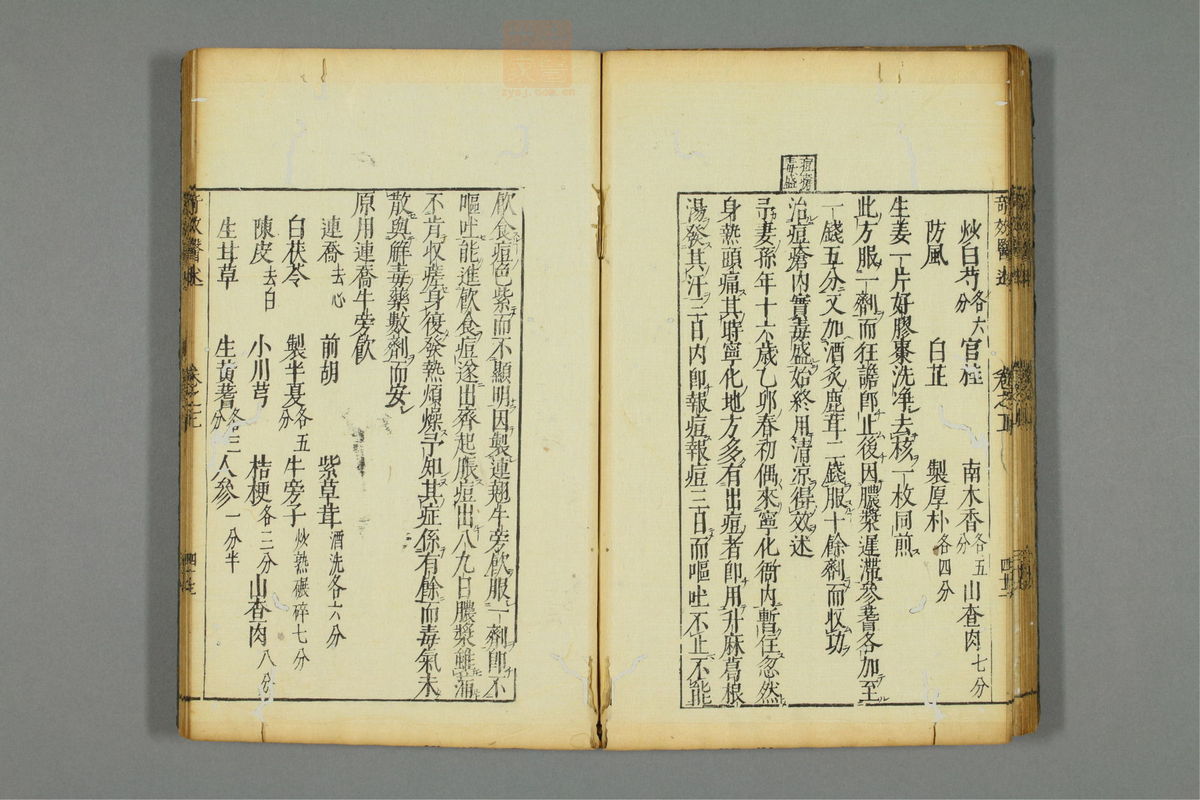 奇效醫述
卷之二
炒白芍各六分 官桂 南木香各五分 山查肉七分
防風 白芷 製厚朴各四分
生姜一片好膠棗洗净去核一枚同煎
此方服一劑而狂譫即止後因膿漿遲滯參耆各加至
一錢五分又加酒炙鹿茸二錢服十餘劑而收功
痘瘡毒盛
治痘瘡内實毒盛始終用清凉得效述
予妻孫年十六歲乙卯春初偶來寧化衙内暫住忽然
身熱頭痛其時寧化地方多有出痘者即用升麻葛根
湯發其汗三日内即報痘報痘三日而嘔吐不止不能
飲食痘色紫而不顯明因製連翹牛旁飲服一劑即不
嘔吐能進飲食痘遂出齊起脹痘出八九日膿漿雖滿
不肯收靨身復發熱煩燥予知其症係有餘而毒氣未
散與解毒藥數劑而安
原用連喬牛旁飲
連喬去心 前胡 紫草茸酒洗各六分
白茯苓 製半夏各五分 牛旁子炒熟碾碎七分
陳皮去白 小川芎 桔梗各三分 山查肉八分
生甘草 生黄蓍各三分 人參一分半
奇效醫述